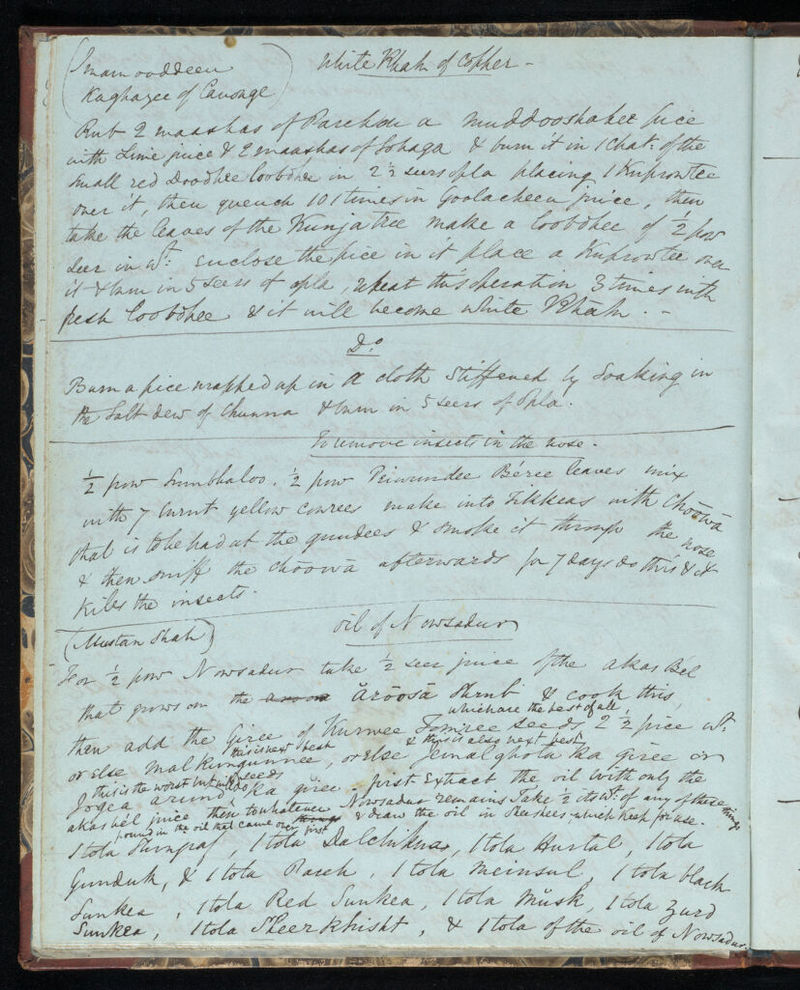 Imam ooddeen
Kaghazee of Canonge
White Khak of Copper -
Rub 2 maashas of Parch on a Muddooshahee pice
with Lime juice & 2 maashas of Sohaga & burn it in 1 Chat: of the
small red Doodhee Loobdhee in 2½ seers opla placing 1 Kuprowtee
over it, then quench 101 times in Goolacheen juice, then
take the leaves of the Kunja tree make a Loobdhee of ½ pow
seer in wt: enclose the pice in it place a Kuprowtee over
it & burn in 5 seers of opla, repeat this operation 3 times with
fresh Loobdhee & it will become white Khāk. -
Do
Burn a pice wrapped up in a cloth stiffened by soaking in
the Salt dew of Chunna & burn in 5 seers of Opla.
To remove insects in the nose -
½ pow Sumbhaloo. ½ pow Peiwundee Béree leaves mix
with 7 burnt yellow cowrees make into Tikkeas with Chōōwā
that is to be had at the gundees & smoke it through the nose
& then sniff the chōōwā afterwards for 7 days do this & it
kills the insects.
(Mustan Shah)
oil of Nowsadur
For ½ pow Nowsadur take ½ seer juice of the akas Bél
that grows on the ārōōsā Shrub & cook this,
which are the best of all,
then add the Giree of Kurwee Tomree seeds 2½ pice wt:
this is next best & this is also next best
or else Malkungunnee, or else Jemalghota ka giree or
this is the worst but will do seeds
Jogea arund ka giree. first Extract the oil with only the
akas bél juice then to whatever Nowsadur remains Take ½ its wt: of any of these things
pound in the oil that came over first & draw the oil in Sheeshees which keep for use.
1 tola Shingraf, 1 tola Dalchikna, 1 tola Hurtal, 1 tola
Gunduk, & 1 tola Parch, 1 tola Meinsul, 1 tola black
Sunkea, 1 tola Red Sunkea, 1 tola Musk, 1 tola Zurd
Sunkea, 1 tola Sheerkhisht, & 1 tola of the oil of Nowsadur